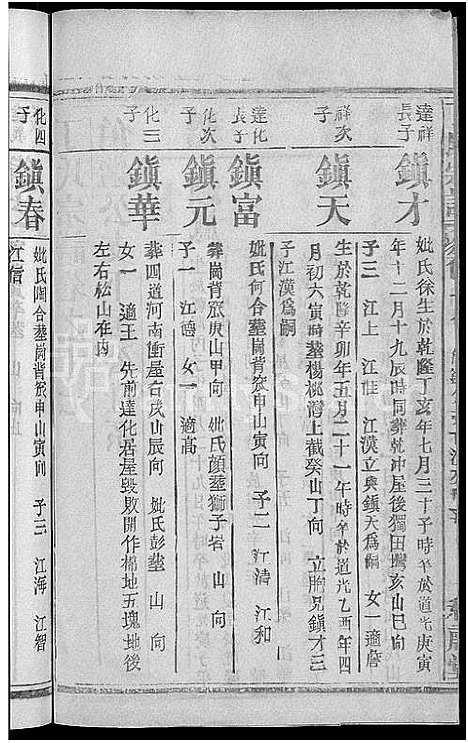 達祥長子
鎮才
妣氏徐生於乾隆丁亥年七月三十子時卒於道光庚寅
年十二月十九辰時同葬乾沖屋後獨田灣亥山巳向
子三 江上 江 江漢立與鎮天為嗣 女一適詹
祥次子
鎮天
生於乾隆辛卯年五月二十一午時卒於道光乙酉年四
月初六寅時塟楊桃灣上截癸山丁向 立胞兄鎮才三
子江漢為嗣
達化長子
鎮富
妣氏何合塟崗背 申山寅向 子二 江清 江和
化次子
鎮元
葬崗背 庚山甲向 妣氏顔塟獅子岩 山 向
子一 江德 女一 適高
化三子
鎮華
葬四道河南衝屋右戌山辰向 妣氏彭塟 山 向
女一 適王 先前達化居屋毀敗開作棉地五塊地後
左右松山在內
化四子
鎮春
妣氏陶合塟崗背 申山寅向 子三 江海 江智
江信